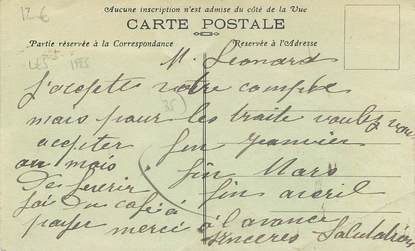 12-6
Aucune inscription n'est admise du côté de la Vue
CARTE POSTALE
Partie réservée à la Correspondance
Réservée à l'Adresse
M. Leonard
J'acepte votre compte
mais pour les traite voulez vou
acepter fin Janvier
au mois fin Mars
De fevrir fin avril
J'ai Du café à
payer merci à l'avance
sinceres Salutation
35